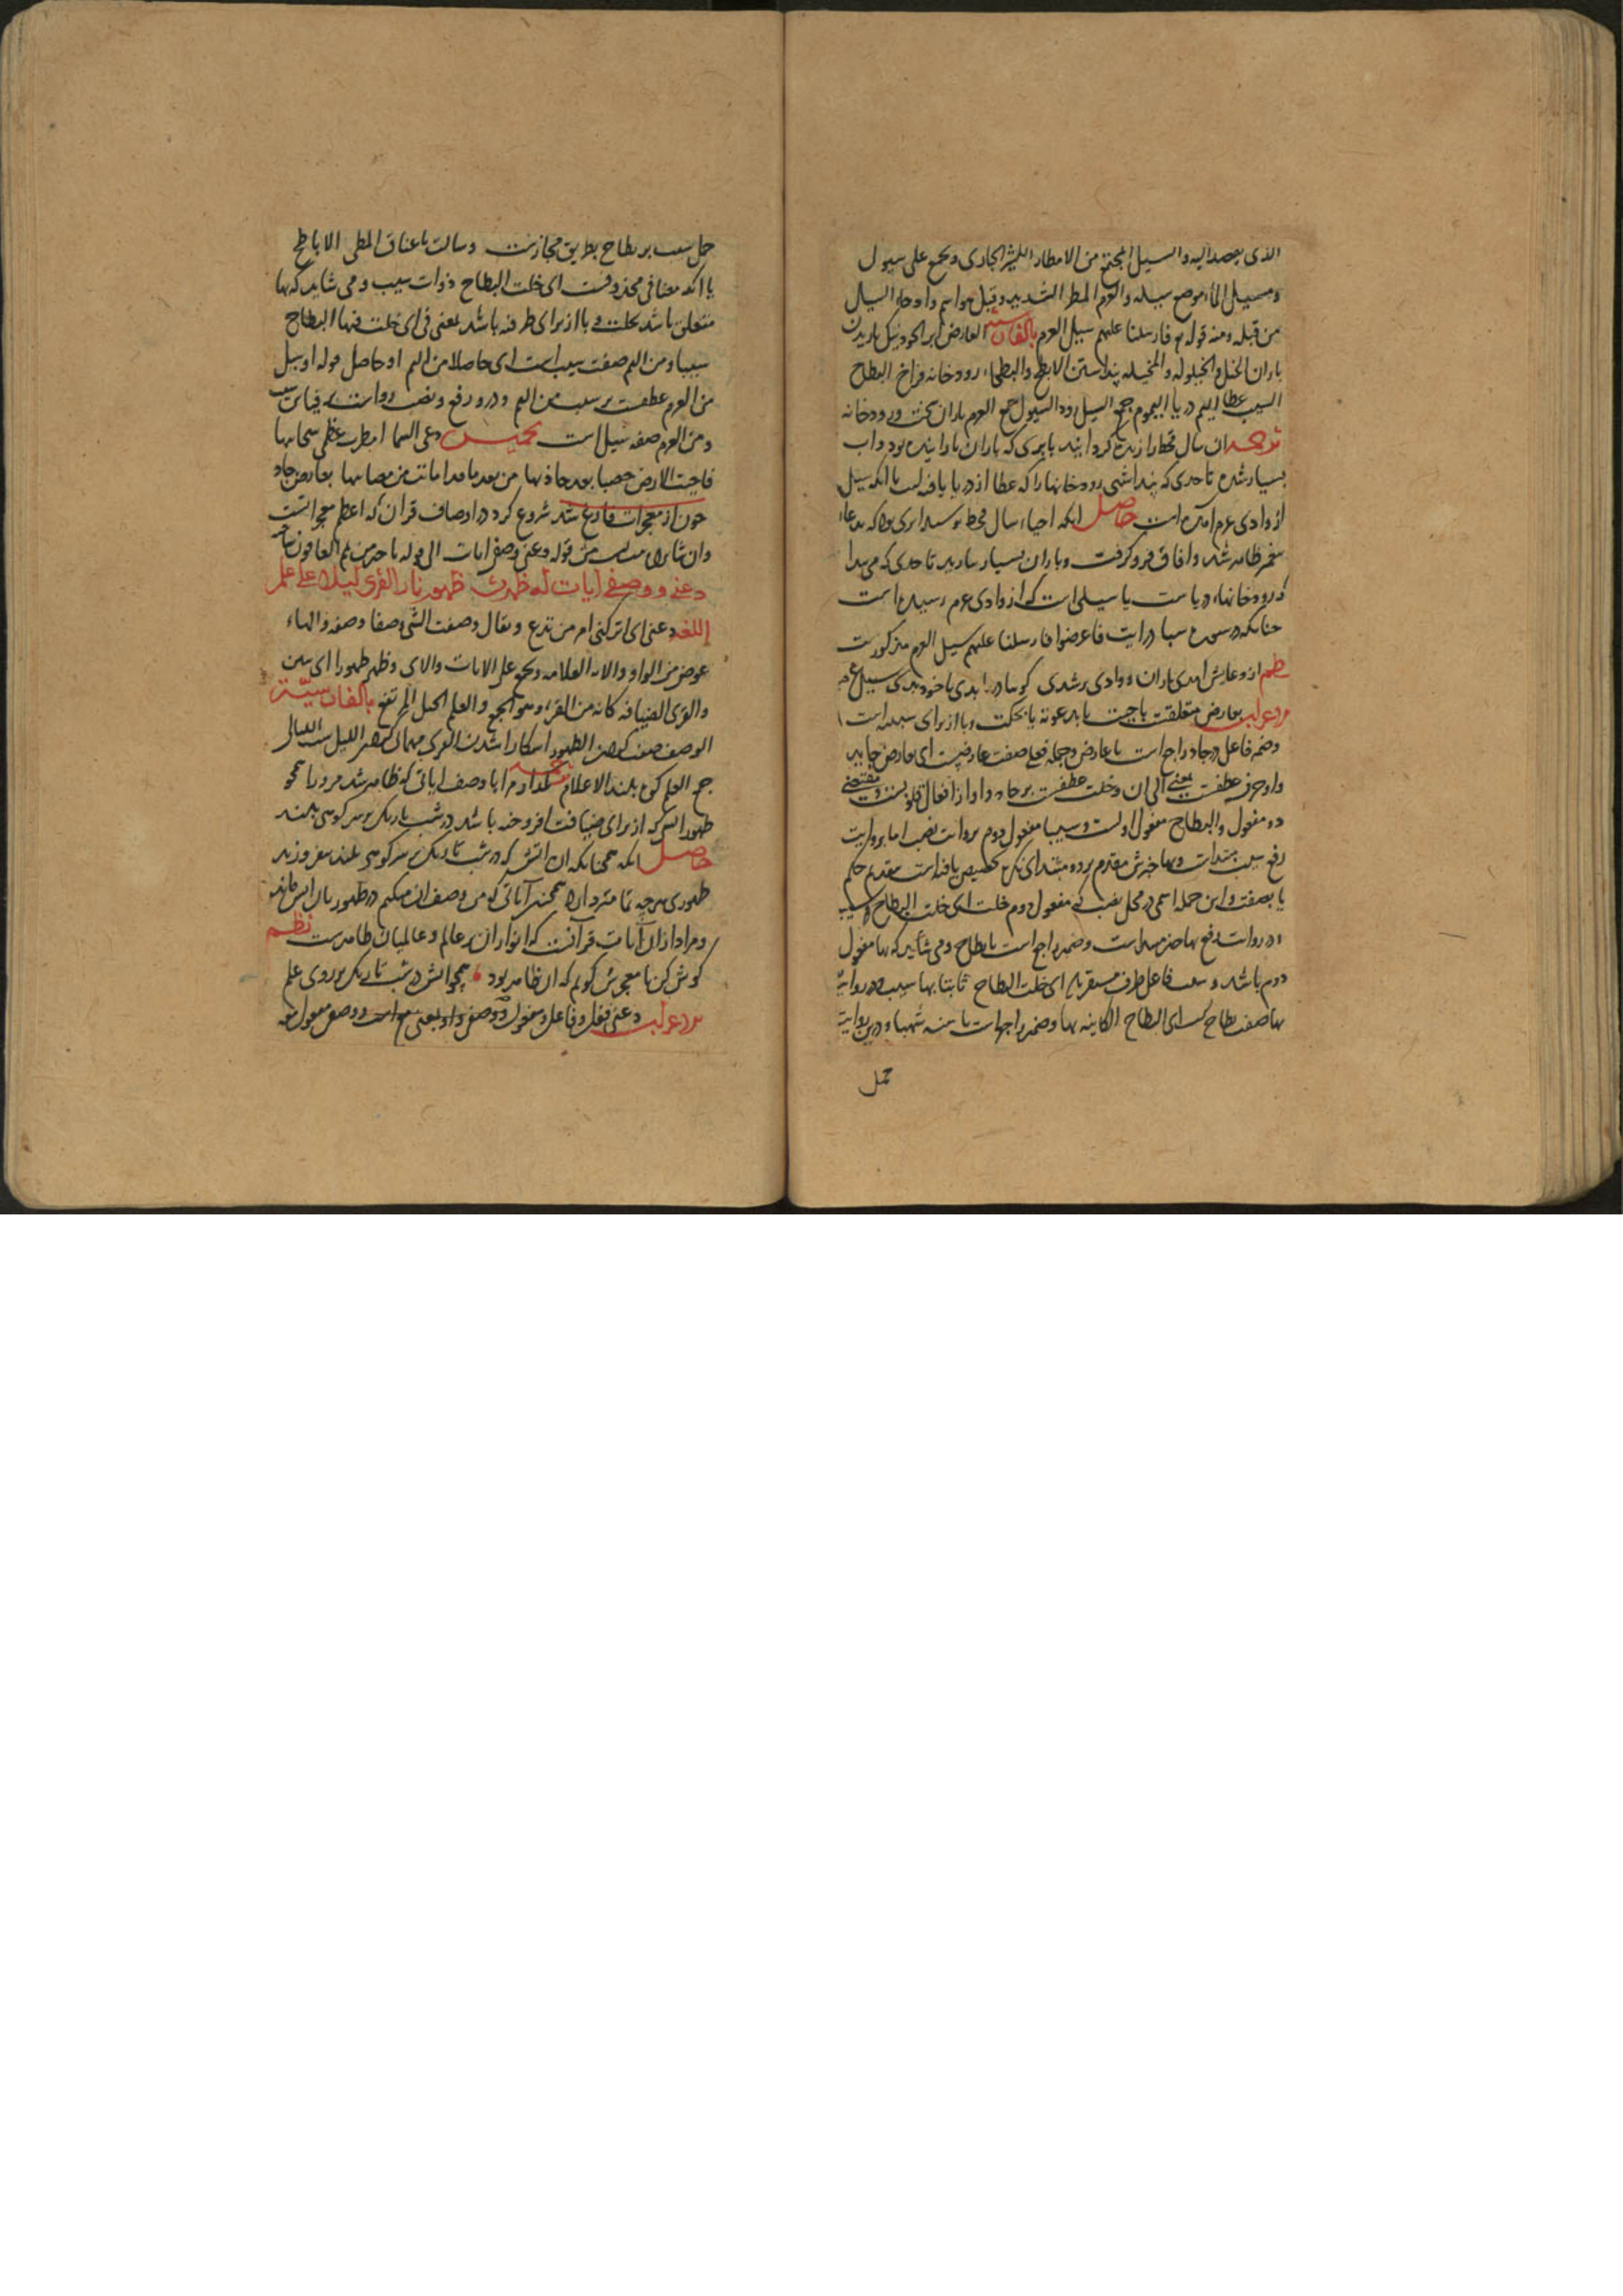 الذی یقصد الیه والسیل المجتمع من الامطار الکثیر الجاری ویجمع علی سیول
ومسیل الماء موضع سیله والعرم المطر الشدید وقیل هو اسم وادجاء السیل
من قبله ومنه قوله تع فارسلنا علیهم سیل العرم بالفارسیة العارض ابر الجود نیک باریدن
باران الخیل والخیلوله والمخیله پنداشتن الابطح والبطحاء رودخانه فراخ البطاح
السیب عطا الیم دریا الیموم جمع السیل رود السیول جمع العرم باران سخت و رودخانه
ترجمه ان سال قحط را زنده کردانید بابری که باران بارانیده بود واب
بسیار شده تا حدی که پنداشتی رودخانها را که عطا از دریا یافته است یا انکه سیل
از وادی عرم امده است حاصل انکه احیاء سال قحط بوسیله ابری بود که بدعاء
پیغمبر ظاهر شد وافاق فرو گرفت وباران بسیار بارید تا حدی که می پندا
که رودخانها دریاست یا سیلی است که از وادی عرم رسیده است
چنانکه در سوره سبا در ایت فاعرضوا فارسلنا علیهم سیل العرم مذکورست
نظم از دعایش امدی باران و وادی پر شدی
اعراب بعارض متعلقست باحیت یا بدعوته یا بحکت وبا از برای سببیه است
وضمیر فاعل در جاد راجع است با عارض وجمله فعلی صفت عارضست ای بعارض جاید
واو حرف عطفست بمعنی الی ان وخلت عطفست بر جاد واو از افعال قلوبست ومقتضی
دو مفعول والبطاح مفعول اولست وسیبا مفعول دوم بروایت نصب اما بروایت
رفع سیب مبتداست وبها خبرش مقدم برو ومبتدای نکره تخصیص یافته است بتقدیم حکم
یا بصفت واین جمله اسمی در محل نصب که مفعول دوم خلت ای خلت البطاح سیب
در روایت رفع بها خبر مبتداست وضمیر راجع است بابطاح ومی شاید که بها مفعول
دوم باشد و سیب فاعل ظرف مستقر بها ای خلت البطاح ثابتا بها سیب ودر روایت
بها صفت بطاح است ای البطاح الکاینه بها وضمیر راجع است با سنه شهبا ودرین روایت
حمل
حمل سیب بر بطاح بطریق مجازست وسالت باعناق المطی الاباطح
یا انکه مضافی محذوفست ای خلت البطاح ذوات سیب ومی شاید که بها
متعلق باشد بخلت وبا از برای ظرفیه باشد بمعنی فی ای خلت فیها البطاح
سیبا ومن الیم صفت سیب است ای حاصلا من الیم او حاصل قوله او سیل
من العرم عطفست بر سیب من الیم ودرو رفع ونصب رواست بر قیاس سیب
ومن العرم صفه سیل است تخمیس دعی السما امطرت عظمی سحابها
فاحیت الارض خصبا بعد جاذبها من بعد ما قد اماتت من مصابها بعارض جاد
چون از معجزات فارغ شد شروع کرد در اوصاف قران که اعظم معجزاتست
وان شانزده بیت است من قوله دعنی ووصفی ایات الی قوله
دعنی ووصفی ایات له ظهرت ظهور نار القری لیلا علی علم
اللغه دعنی ای اترکنی امر من تدع ویقال وصفت الشی وصفا وصفه والهاء
عوض من الواو والایه العلامه ویجمع علی الایات والای وظهر ظهورا ای تبین
والقری الضیافه کانه من القری وهو الجمع والعلم الجبل المرتفع بالفارسیة
الوصف صفت کردن الظهور اشکارا شدن القری مهمانی کردن اللیل شب اللیالی
جمع العلم کوه بلند الاعلام ترجمه بگذار مرا با وصف ایاتی که ظاهر شد مرو را همچو
ظهور اتش که از برای ضیافت افروخته باشد در شب تاریک بر سر کوهی بلند
حاصل انکه همچنانکه ان اتش که در شب تاریک بر سر کوهی بلند بیفروزند
ظهوری هرچه تمامتر دارد همچنین آیاتی که من وصف ان میکنم در ظهور بان اتش ماند
ومراد ازان آیات قرآنست که انوار ان در عالم وعالمیان ظاهرست نظم
کوش کن تا معجزش گویم که ان ظاهر بود همچو اتش در شب تاریک بر روی علم
اعراب دعنی فعل وفاعل ومفعول ووصفی واو بمعنی مع است ووصفی مفعول معه